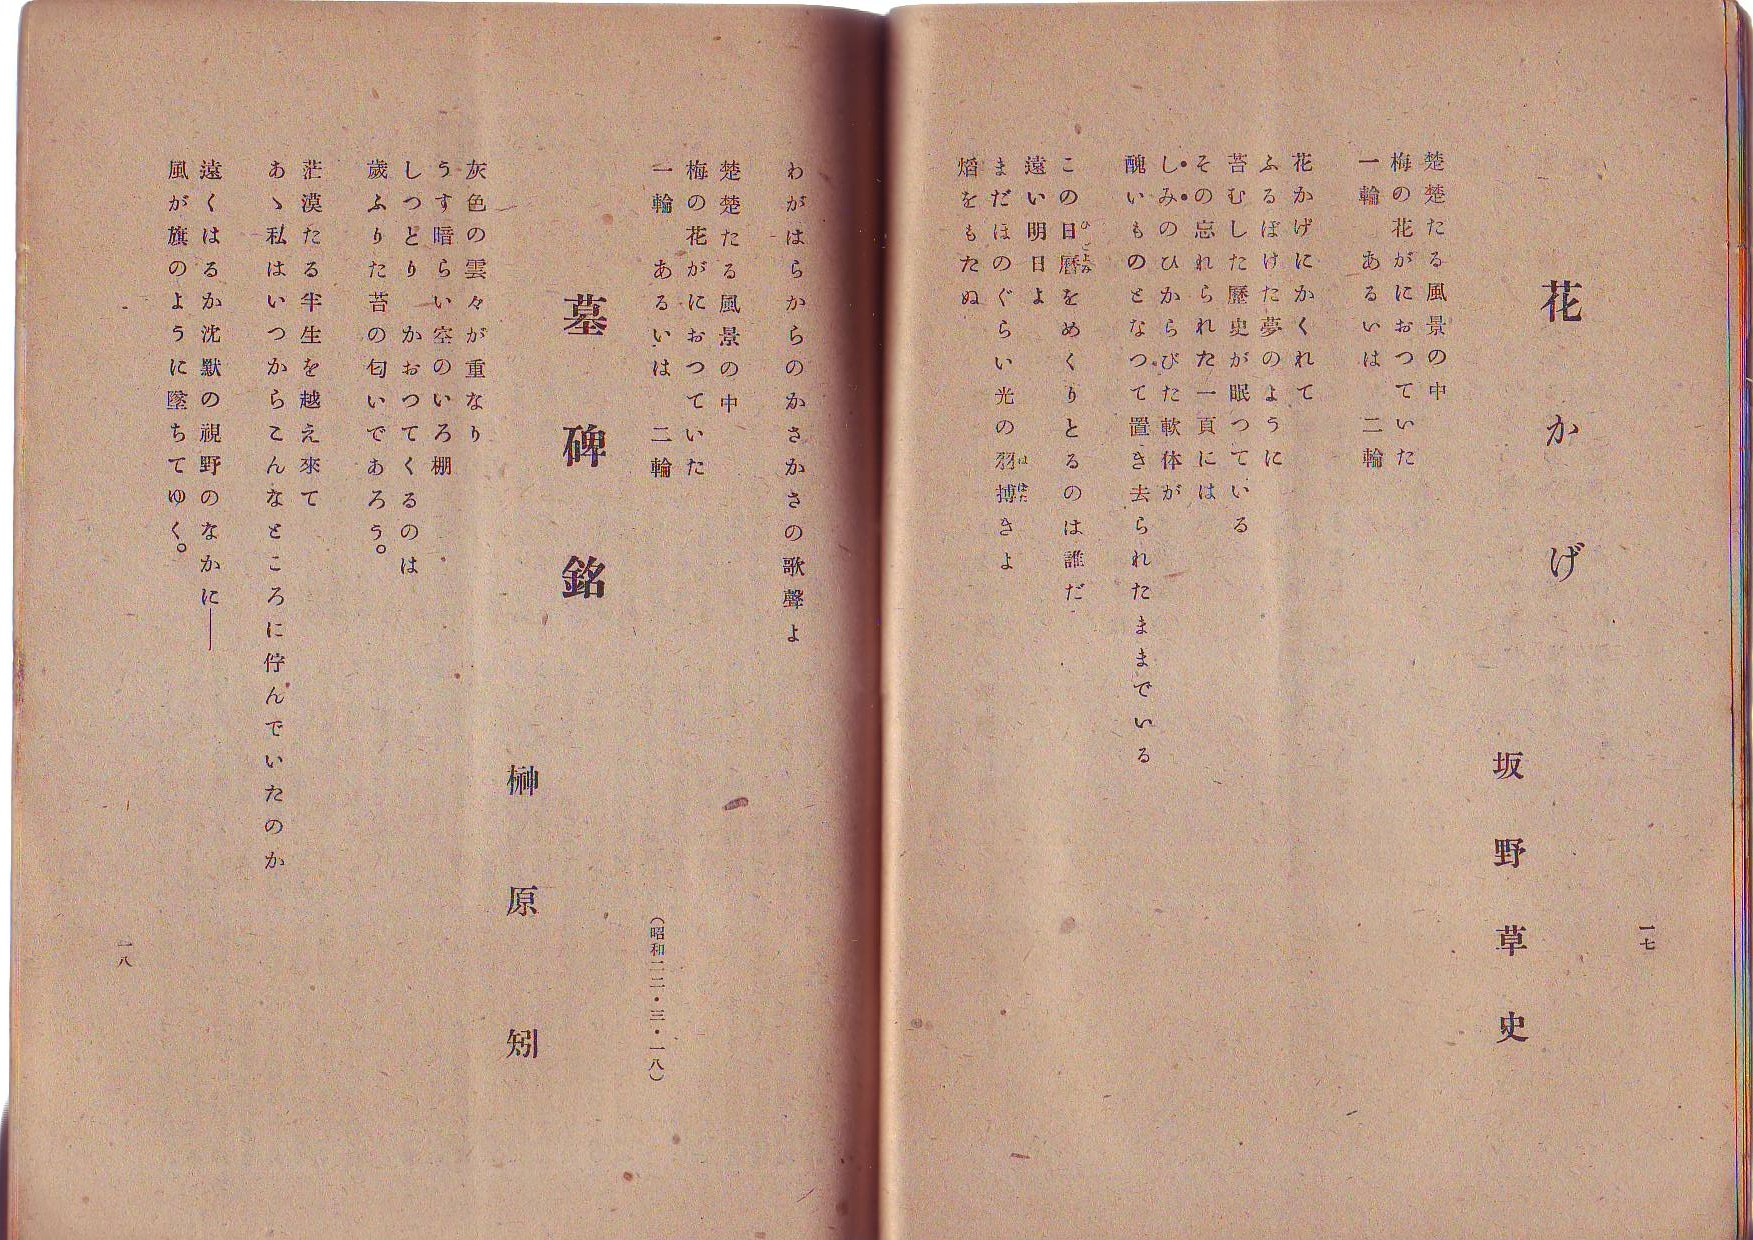 花かげ
坂野草史
楚楚たる風景の中
梅の花がにおつていた
一輪　あるいは　二輪
花かげにかくれて
ふるぼけた夢のように
苔むした歴史が眠つている
その忘れられた一頁には
しみのひからびた軟体が
醜いものとなつて置き去られたままでいる
この日暦をめくりとるのは誰だ
ひごよみ
遠い明日よ
まだほのぐらい光の羽搏きよ
はばた
焰をもたぬ
一七
わがはらからのかさかさの歌聲よ
楚楚たる風景の中
梅の花がにおつていた
一輪　あるいは　二輪
（昭和二二・三・一八）
墓碑銘
榊原矧
灰色の雲々が重なり
うす暗らい空のいろ棚
しつとり　かおつてくるのは
歲ふりた苔の匂いであろう。
茫漠たる半生を越え來て
あゝ私はいつからこんなところに佇んでいたのか
遠くはるか沈默の視野のなかに――
風が旗のように墜ちてゆく。
一八